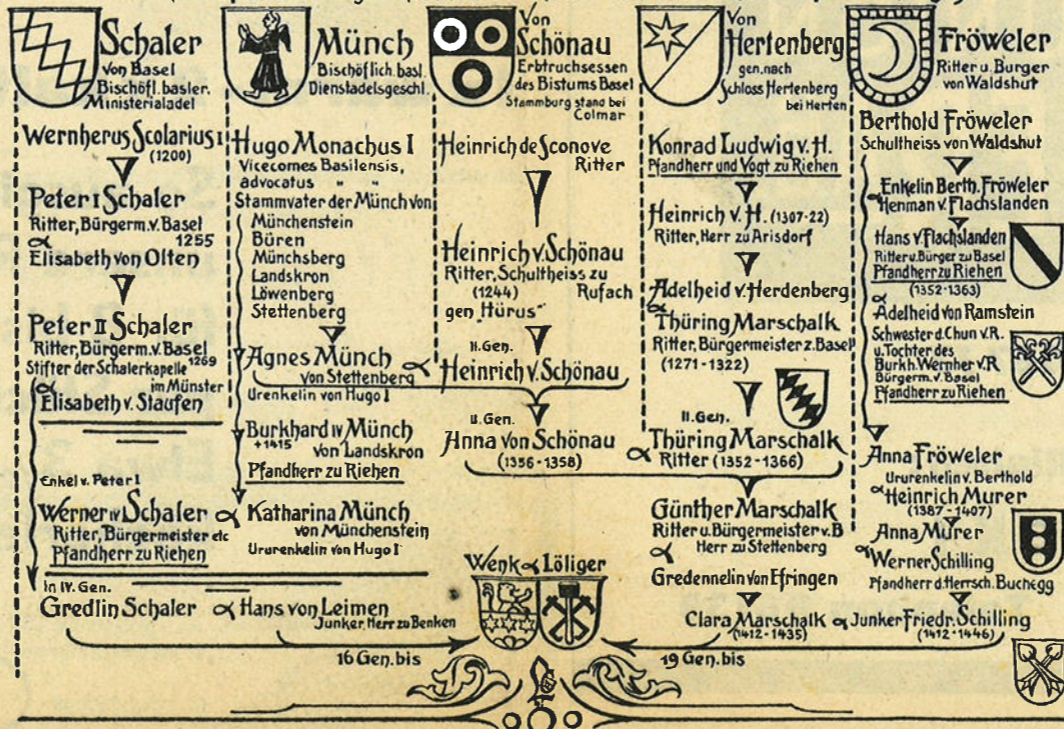 Schaler
von Basel
Bischöfl. basler.
Ministerialadel
Wernherus Scolarius I
(1200)
Peter I Schaler
Ritter, Bürgerm. v. Basel
1255
∝
Elisabeth von Olten
Peter II Schaler
Ritter, Bürgerm. v. Basel
Stifter der Schalerkapelle 1269
im Münster
∝
Elisabeth v. Staufen
Enkel v. Peter I
Werner IV Schaler ∝
Ritter, Bürgermeister etc
Pfandherr zu Riehen
In IV. Gen.
Gredlin Schaler ∝ Hans von Leimen
Junker, Herr zu Benken
16 Gen. bis
Münch
Bischöflich. basl.
Dienstadelsgeschl.
Hugo Monachus I
Vicecomes Basilensis,
advocatus " "
Stammvater der Münch von
Münchenstein
Büren
Münchsberg
Landskron
Löwenberg
Stettenberg
Agnes Münch ∝
von Stettenberg
Urenkelin von Hugo I
Burkhard IV Münch
+1415 von Landskron
Pfandherr zu Riehen
Katharina Münch
von Münchenstein
Ururenkelin von Hugo I
Von
Schönau
Erbtruchsessen
des Bistums Basel
Stammburg stand bei
Colmar
Heinrich de Sconove
Ritter
Heinrich v. Schönau
Ritter, Schultheiss zu
(1244) Rufach
gen. "Hürus"
II. Gen.
Heinrich v. Schönau
II. Gen.
Anna von Schönau ∝
(1356-1358)
Wenk ∝ Löliger
Von
Hertenberg
gen. nach
Schloss Hertenberg
bei Herten
Konrad Ludwig v. H.
Pfandherr und Vogt zu Riehen
Heinrich v. H. (1307-22)
Ritter, Herr zu Arisdorf
Adelheid v. Herdenberg
∝
Thüring Marschalk
Ritter, Bürgermeister z. Basel
(1271-1322)
II. Gen.
Thüring Marschalk
Ritter (1352-1366)
Günther Marschalk
Ritter u. Bürgermeister v. B
∝ Herr zu Stettenberg
Gredennelin von Efringen
Clara Marschalk ∝ Junker Friedr. Schilling
(1412-1435) (1412-1446)
19 Gen. bis
Fröweler
Ritter u. Bürger
von Waldshut
Berthold Fröweler
Schultheiss von Waldshut
Enkelin Berth. Fröweler
∝ Henman v. Flachslanden
Hans v. Flachslanden
Ritter u. Bürger zu Basel
Pfandherr zu Riehen
(1352-1363)
∝
Adelheid von Ramstein
Schwester d. Chun v. R.
u. Tochter des
Burkh. Wernher v. R
Bürgerm. v. Basel
Pfandherr zu Riehen
Anna Fröweler
Ururenkelin v. Berthold
∝ Heinrich Murer
(1387-1407)
Anna Murer
∝
Werner Schilling
Pfandherr d. Herrsch. Buchegg